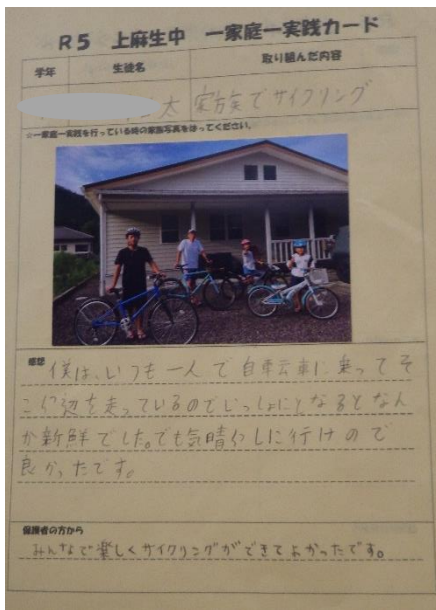 R5 上麻生中 一家庭一実践カード
学年 生徒名 取り組んだ内容
太 家族でサイクリング
☆一家庭一実践を行っている時の家族写真をはってください。
感想
僕は、いつも一人で自転車に乗ってそ
こら辺を走っているのでいっしょにとなるとなん
か新鮮でした。でも気晴らしに行けので
良かったです。
保護者の方から
みんなで楽しくサイクリングができてよかったです。